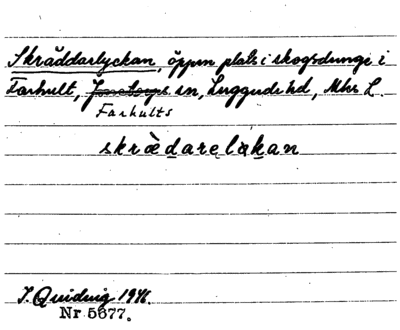 Skräddarlyckan, öppen plats i skogsdunge i
Farhult, Jonstorps sn, Luggude hd, Mhs L.
Farhults
skrædarelakan
J. Quidvig 1946.
Nr 5677.